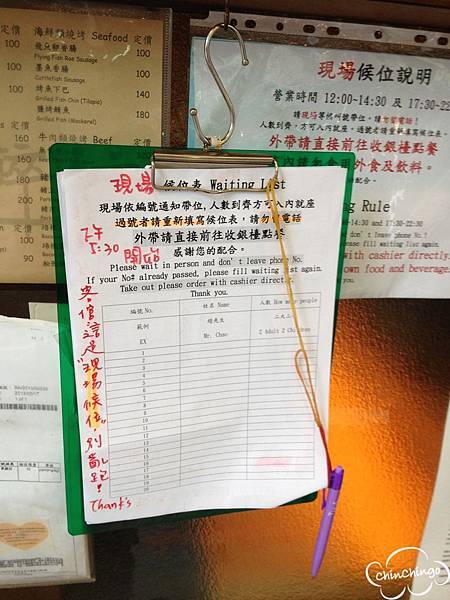 海鮮類燒烤 Seafood 定價
飛魚卵香腸 100
Flying Fish Roe Sausage
墨魚香腸 80
Cuttlefish Sausage
烤魚下巴 140
Grilled Fish Chin (Tilapia)
鹽烤鯖魚 180
Grilled Fish (Mackerel)
定價
100
100
100
牛肉類燒烤 Beef
現場候位說明
營業時間 12:00-14:30 及 17:30-22
外帶請直接前往收銀檯點餐
外食及飲料。
ng Rule
and 17:30-22:30
leave phone No.
fill waiting list again.
with cashier directly.
own food and beverage
現場 候位表 Waiting List
現場依編號通知帶位,人數到齊方可入內就座
過號者請重新填寫候位表，請勿留電話
外帶請直接前往收銀檯點餐
感謝您的配合。
Please wait in person and don't leave phone No.
If your No# already passed, please fill waiting list again.
Take out please order with cashier directly.
Thank you.
下午
5:30
開始
編號 No. 姓名 Name 人數 How many people
範例 趙先生 二大二小
EX Mr. Chao 2 Adult 2 Children
1
2
3
4
5
6
7
8
9
10
11
12
13
14
15
16
17
18
19
20
貴賓這是"現場候位",別亂跑!
Thank's
chinchingo